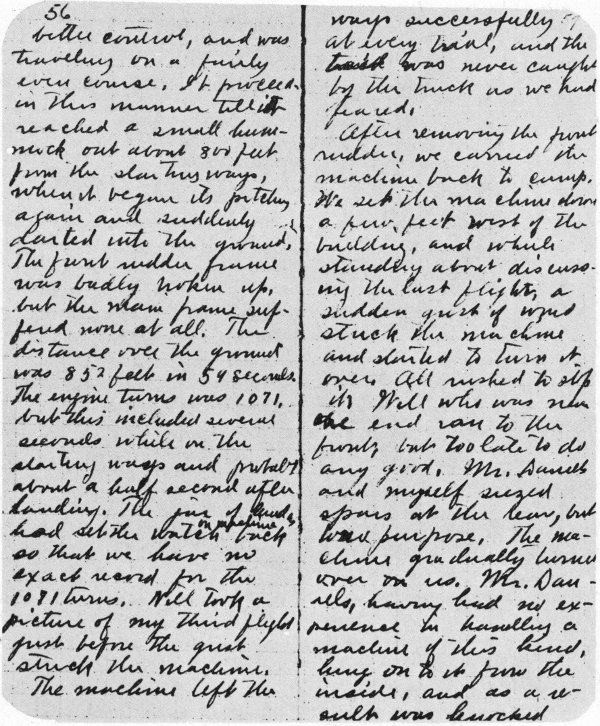 56
better control, and was
traveling on a fairly
even course. It proceed-
in this manner till it
reached a small hum-
mock out about 800 feet
from the starting ways,
when it began its pitching
again and suddenly
darted into the ground.
The front rudder frame
was badly broken up,
but the main frame suf-
fered none at all. The
distance over the ground
was 852 feet in 59 seconds.
The engine turns was 1071,
but this included several
seconds while on the
starting ways and probably
about a half second after
landing. The jar of landing
had set the watch on machine back
so that we have no
exact record for the
1071 turns. Will took a
picture of my third flight
just before the gust
struck the machine.
The machine left the
ways successfully
at every trial, and the
was never caught
by the truck as we had
feared.
After removing the front
rudder, we carried the
machine back to camp.
We set the machine down
a few feet west of the
building, and while
standing about discuss-
ing the last flight, a
sudden gust of wind
struck the machine
and started to turn it
over. All rushed to stop
it. Will who was near
one end ran to the
front, but too late to do
any good. Mr. Daniels
and myself seized
spars at the rear, but
to no purpose. The ma-
chine gradually turned
over on us. Mr. Dan-
iels, having had no ex-
perience in handling a
machine of this kind,
hung on to it from the
inside, and as a re-
sult was knocked